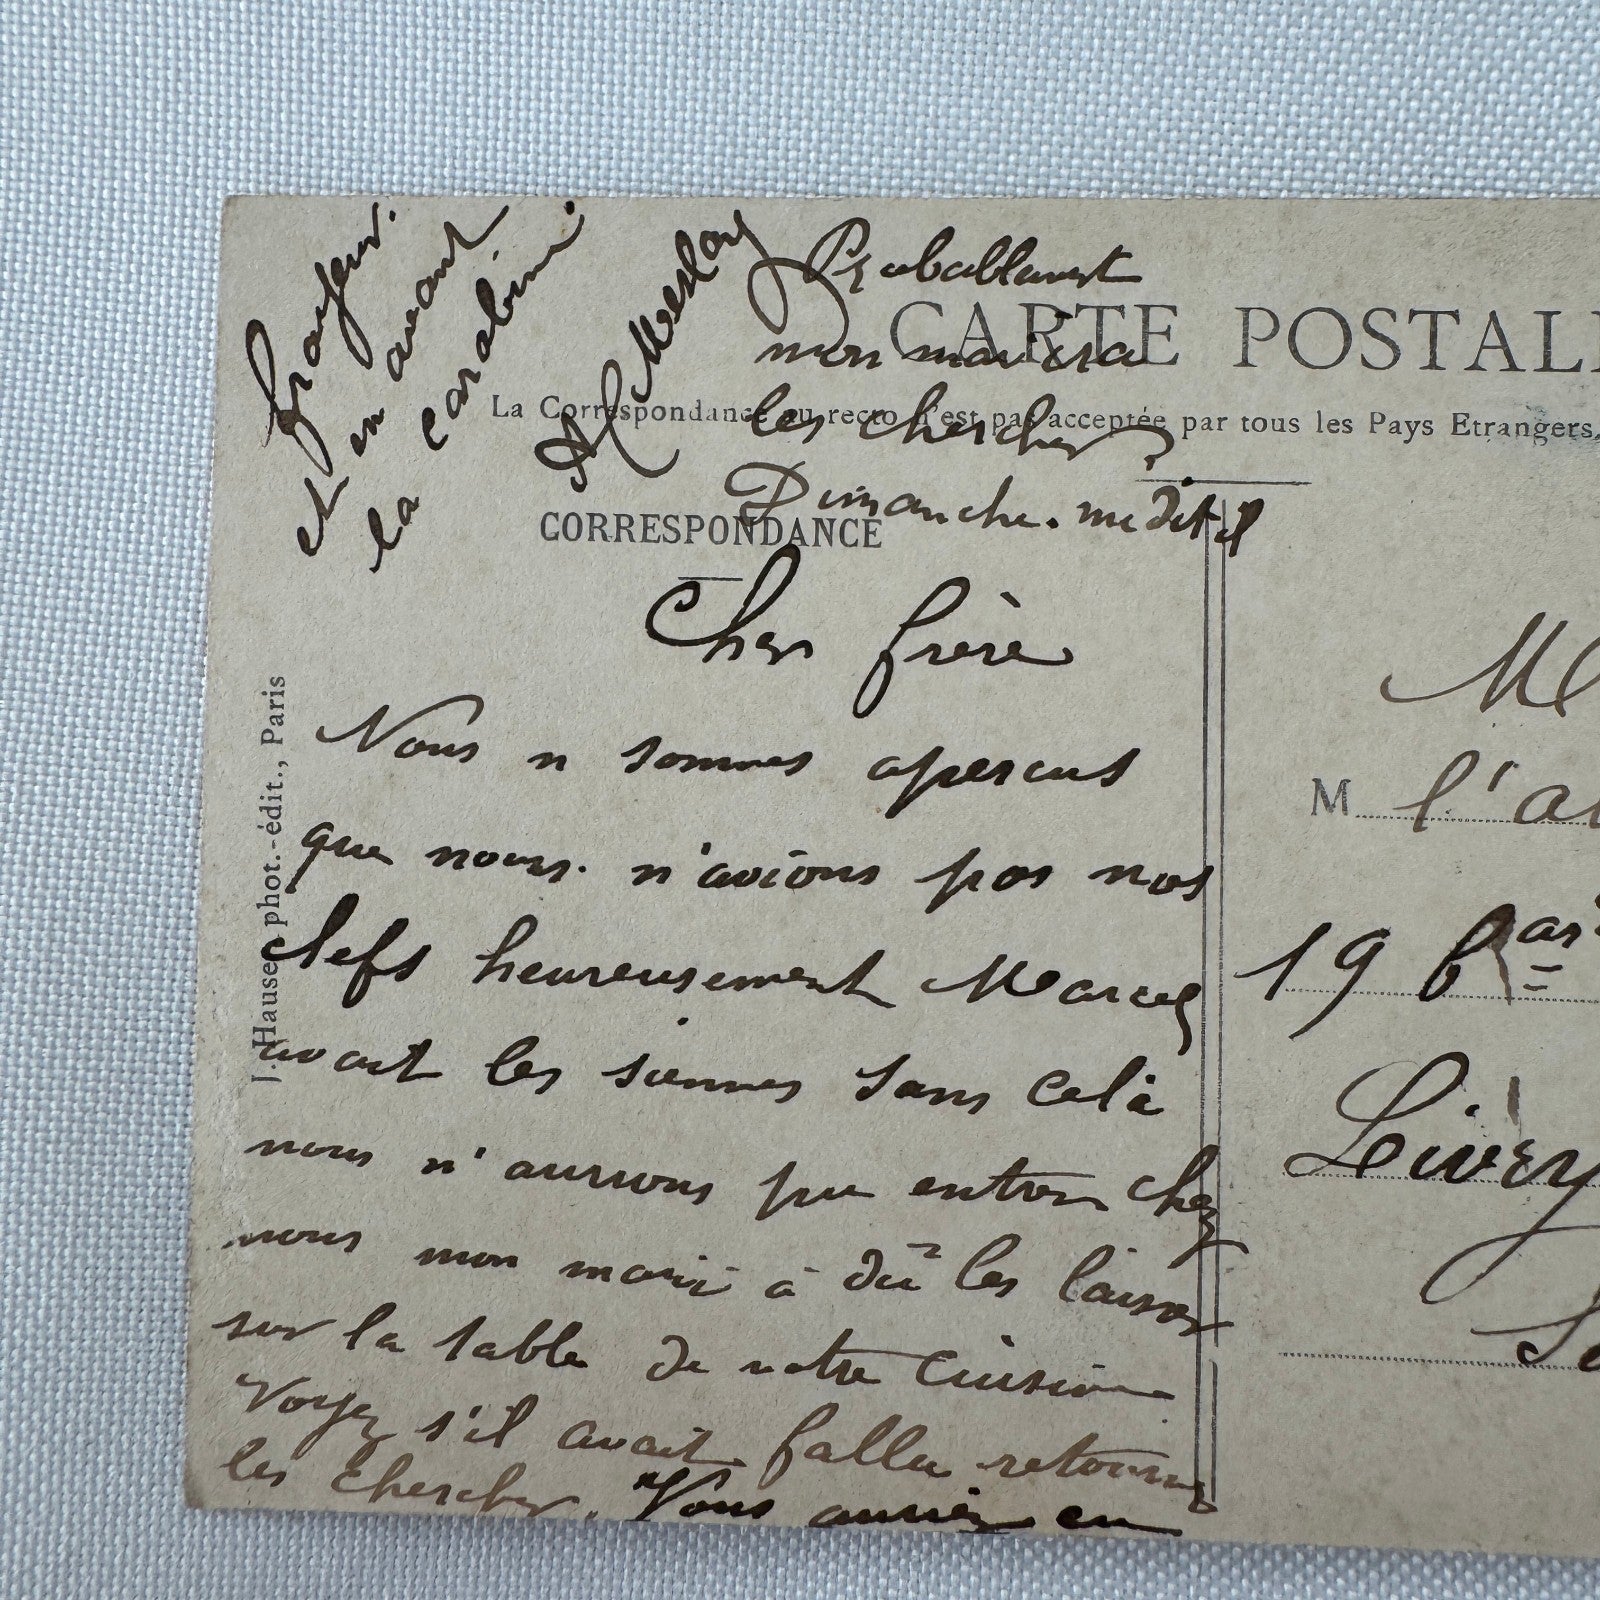 CARTE POSTALE
La Correspondance au recto n'est pas acceptée par tous les Pays Etrangers,
CORRESPONDANCE
J. Hauser, phot.-édit., Paris
Cher frère
Nous n sommes apercus
que nous. n'avions pas nos
clefs heureusement Marcel
avait les siennes sans celà
nous n'aurions pu entrer chez
nous mon mari à dû les laisser
sur la table de notre cuisine
Voyez s'il avait fallu retourner
les chercher. Vous auriez eu
frayeur.
et en avant
la carabine.
Meslay
Probablement
mon mari ira
les chercher
Dimanche. me dit il
M
l'a
19 b
Livry